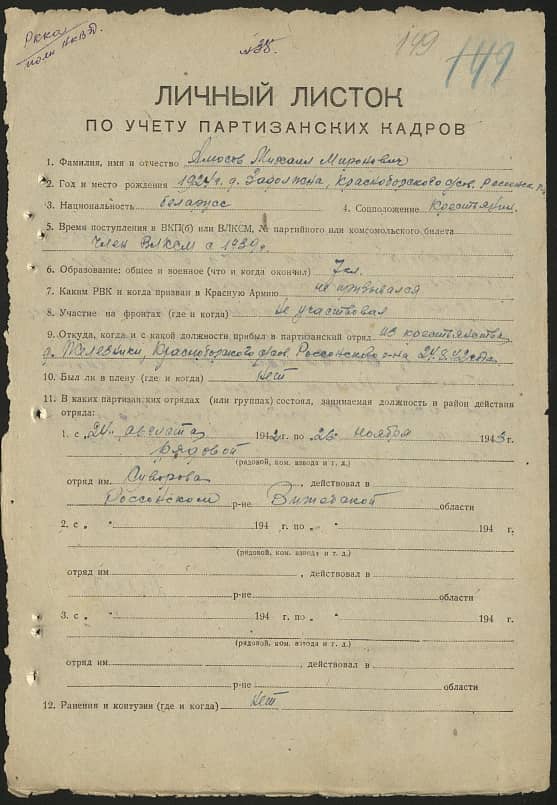 РККА
полн НКВД.
№35.
149
149
ЛИЧНЫЙ ЛИСТОК
ПО УЧЕТУ ПАРТИЗАНСКИХ КАДРОВ
1. Фамилия, имя и отчество Амосов Михаил Миронович
2. Год и место рождения 1924г. д. Задолжна, Красноборского с/сов. Россонск. р-на
3. Национальность беларусс 4. Соцположение Крестьянин.
5. Время поступления в ВКП(б) или ВЛКСМ, № партийного или комсомольского билета
Член ВЛКСМ с 1939г.
6. Образование: общее и военное (что и когда окончил) 7кл.
7. Каким РВК и когда призван в Красную Армию не призывался
8. Участие на фронтах (где и когда) Не участвовал
9. Откуда, когда и с какой должности прибыл в партизанский отряд из крестьянства
д. Красноборского с/сов. Россонского р-на 24.8.42 года
10. Был ли в плену (где и когда) Нет
11. В каких партизанских отрядах (или группах) состоял, занимаемая должность и район действия
отряда:
1. с „24„ августа 1942 г. по „26„ ноября 1943 г.
Рядовой
(рядовой, ком. взвода и т. д.)
отряд им Суворова, действовал в
Россонском р-не Витебской области
2. с „ “ 194 г. по „ “ 194 г.
(рядовой, ком. взвода и т. д.)
отряд им , действовал в
р-не области
3. с „ “ 194 г. по „ “ 194 г.
(рядовой, ком. взвода и т. д.)
отряд им , действовал в
р-не области
12. Ранения и контузии (где и когда) Нет